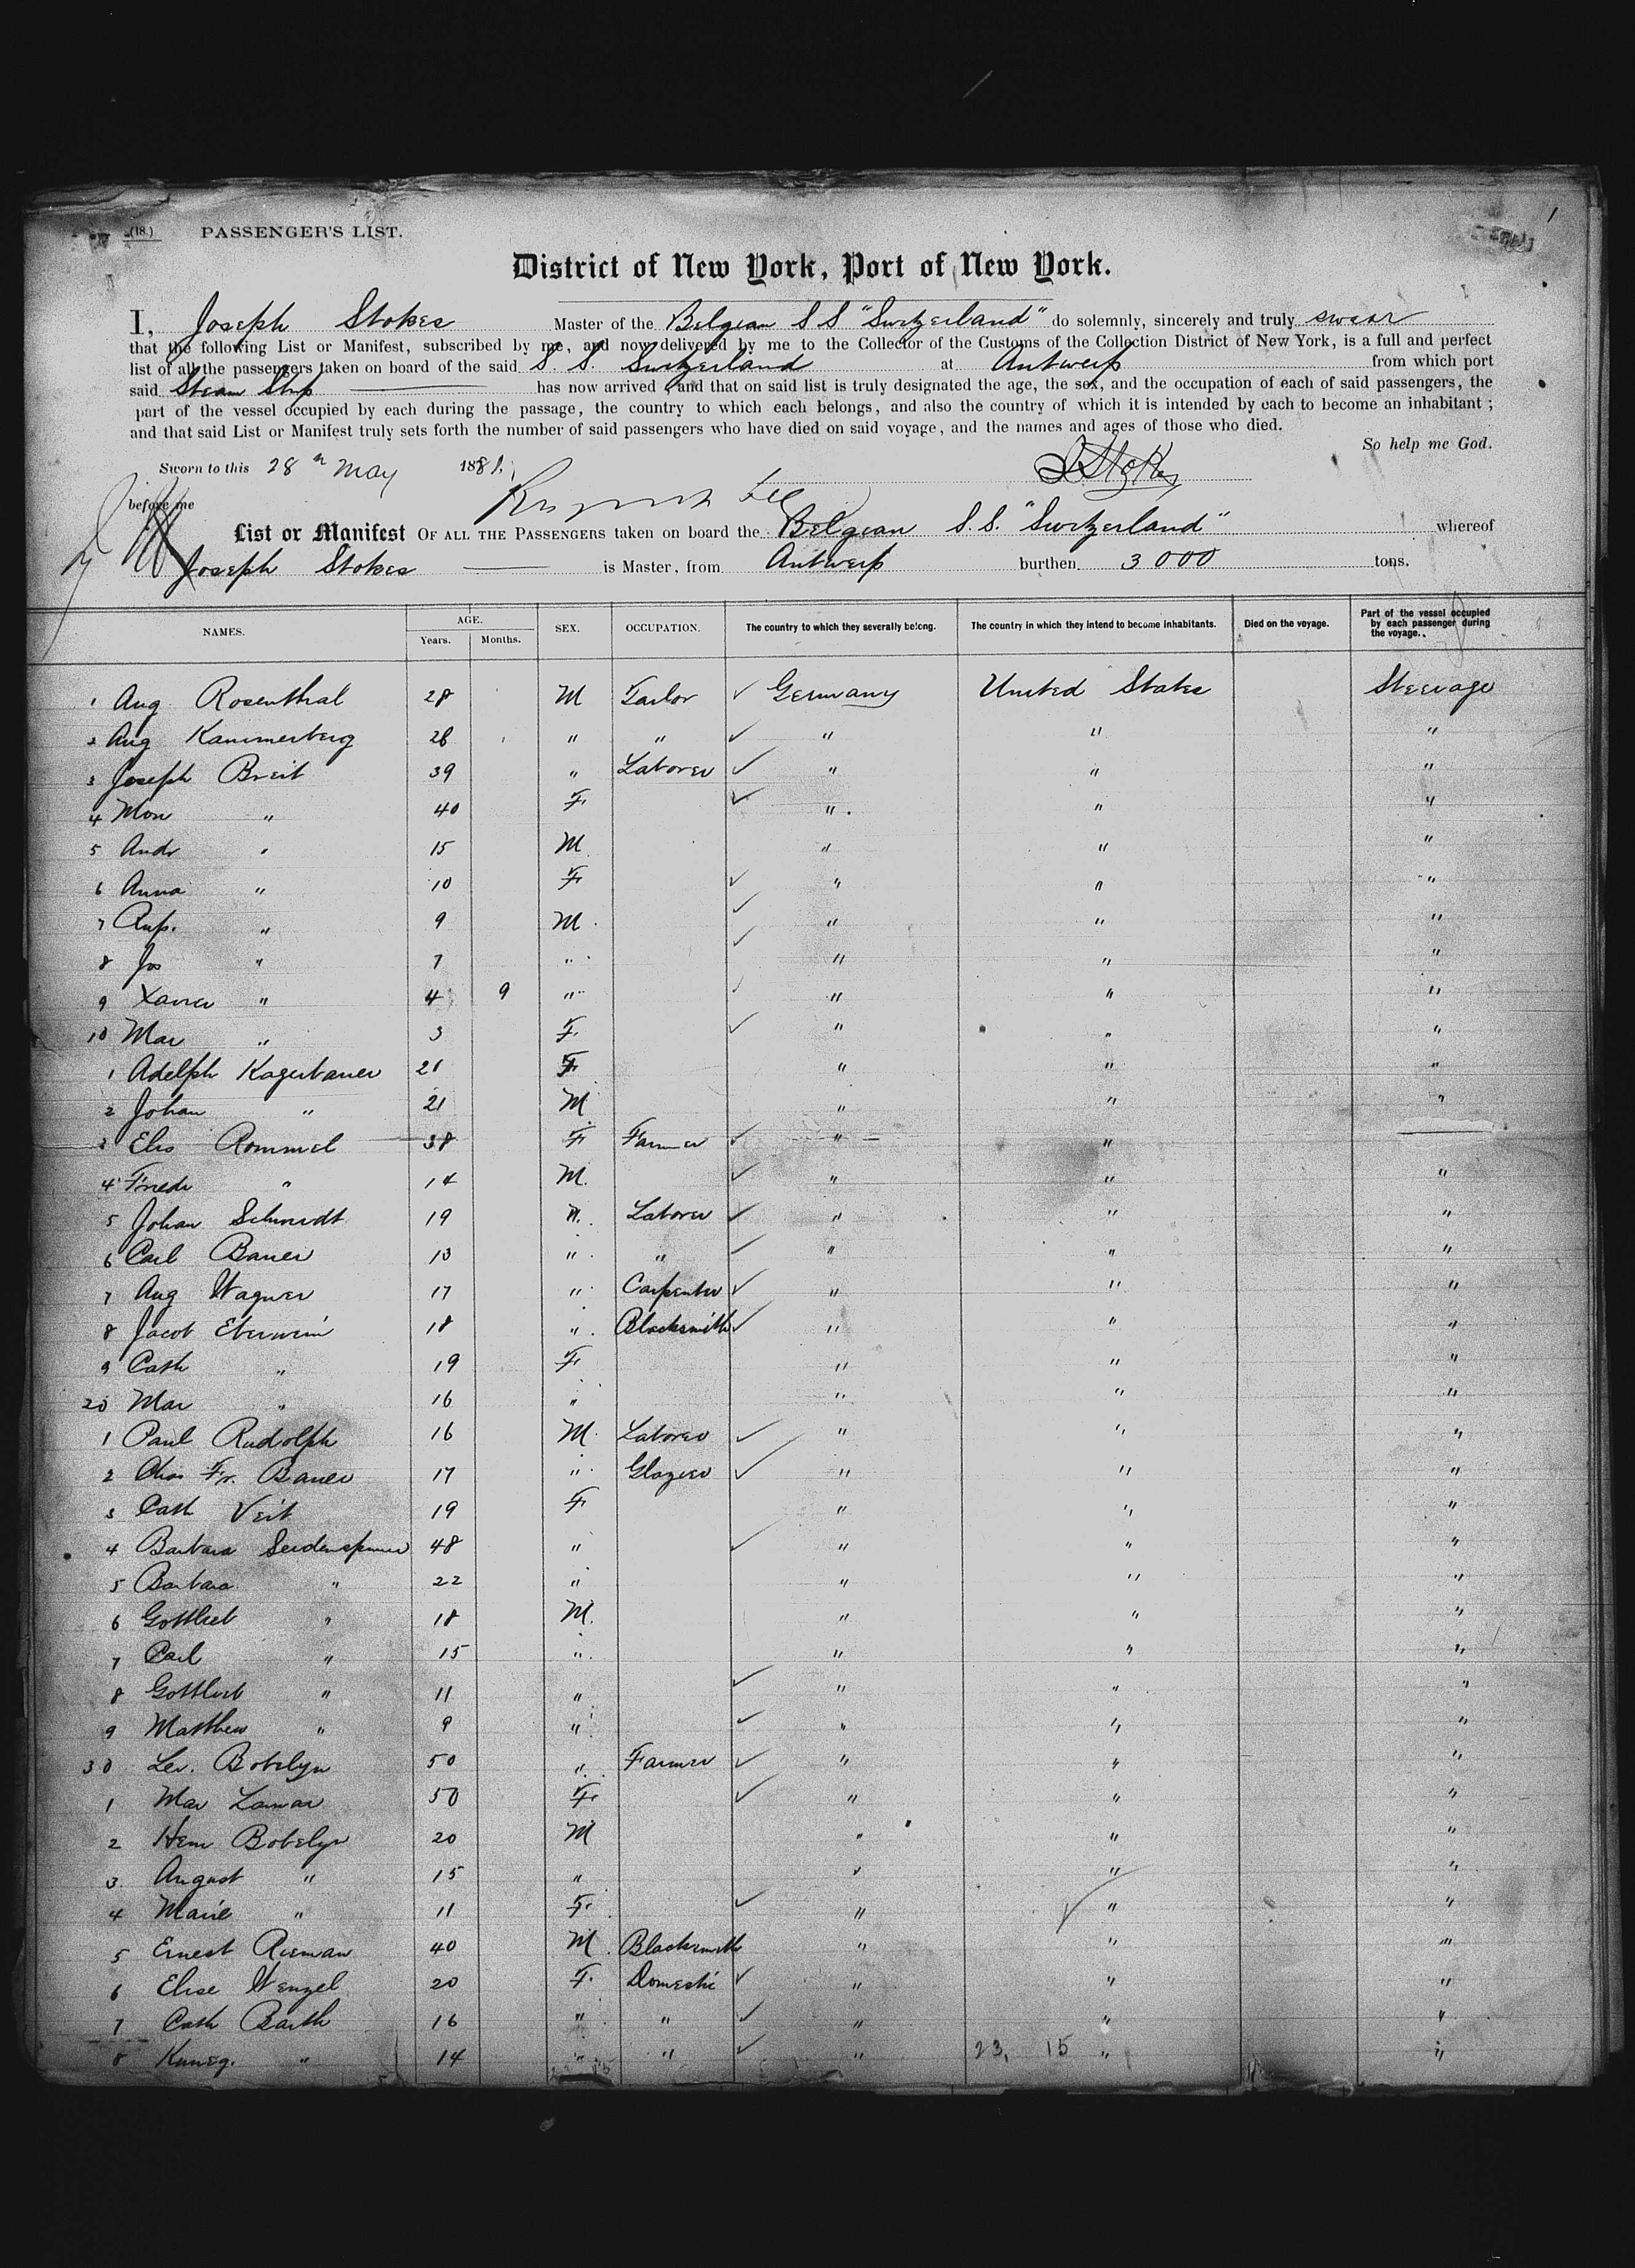 (18.) PASSENGER'S LIST.
1
District of New York, Port of New York.
I, Joseph Stokes Master of the Belgian S S "Switzerland" do solemnly, sincerely and truly swear
that the following List or Manifest, subscribed by me, and now delivered by me to the Collector of the Customs of the Collection District of New York, is a full and perfect
list of all the passengers taken on board of the said S. S. Switzerland at Antwerp from which port
said Steam Ship has now arrived; and that on said list is truly designated the age, the sex, and the occupation of each of said passengers, the
part of the vessel occupied by each during the passage, the country to which each belongs, and also the country of which it is intended by each to become an inhabitant;
and that said List or Manifest truly sets forth the number of said passengers who have died on said voyage, and the names and ages of those who died.
So help me God.
Sworn to this 28th May 1881. J Stokes
before me
List or Manifest OF ALL THE PASSENGERS taken on board the Belgian S.S. "Switzerland" whereof
Joseph Stokes is Master, from Antwerp burthen 3000 tons.
NAMES. AGE. Years. Months. SEX. OCCUPATION. The country to which they severally belong. The country in which they intend to become inhabitants. Died on the voyage. Part of the vessel occupied by each passenger during the voyage.
1 Aug Rosenthal 28 M Tailor ✓ Germany United States Steerage
2 Aug Kammerberg 26 " " ✓ " " "
3 Joseph Breit 39 " Laborer ✓ " " "
4 Mon " 40 F ✓ " " "
5 Andr " 15 M " " "
6 Anna " 10 F ✓ " " "
7 " 9 M ✓ " " "
8 Jos " 7 " ✓ " " "
9 Xaver " 4 9 " ✓ " " "
10 Mar " 3 F ✓ " " "
1 Adelph Kagerbauer 21 F " " "
2 Johan " 21 M " " "
3 Elis Rommel 38 F Farmer ✓ " "
4 Friedr " 14 M ✓ " " "
5 Johan Schmidt 19 " Laborer ✓ " " "
6 Carl Bauer 13 " " ✓ " " "
7 Aug Wagner 17 " Carpenter ✓ " " "
8 Jacob Eberwein 18 " Blacksmith ✓ " " "
9 Cath " 19 F " " "
20 Mar " 16 " " " "
1 Paul Rudolph 16 M Laborer ✓ " " "
2 Chas Fr. Bauer 17 " Glazier ✓ " " "
3 Cath Veit 19 F " " "
4 Barbara Seidenspinner 48 " ✓ " " "
5 Barbara " 22 " " " "
6 Gottlieb " 18 M " " "
7 Carl " 15 " " " "
8 Gottlieb " 11 " ✓ " " "
9 Matthew " 9 " ✓ " " "
30 Lev. Bobelyn 50 " Farmer ✓ " " "
1 Mar Lamar 50 F ✓ " " "
2 Henr Bobelyn 20 M " " "
3 August " 15 " " " "
4 Marie " 11 F ✓ " " "
5 Ernest Rieman 40 M Blacksmith " " "
6 Elise Wenzel 20 F Domestic ✓ " " "
7 Cath Barth 16 " " ✓ " " "
8 Kuneg. " 14 " " ✓ " 23, 15 " "